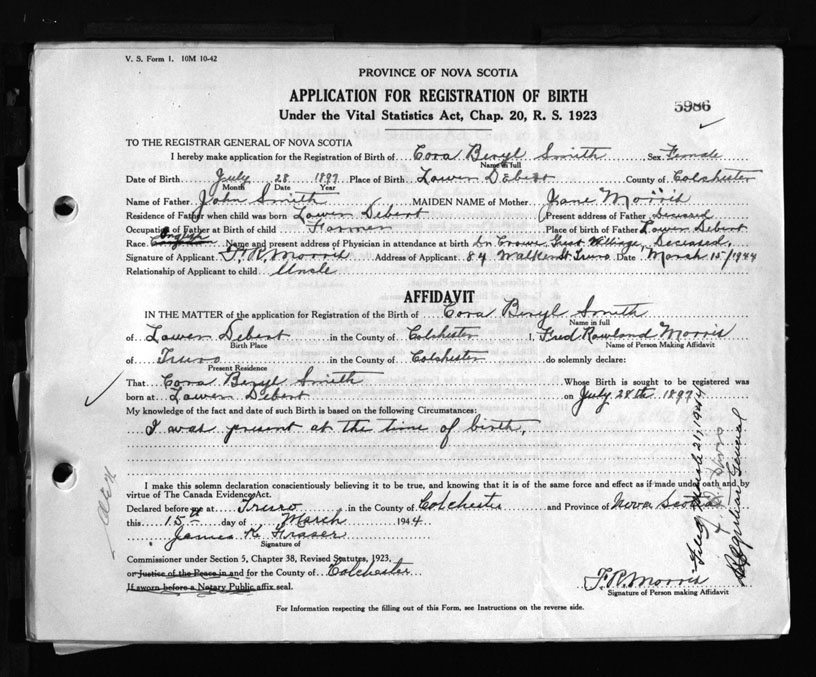 V. S. Form 1. 10M 10-42
PROVINCE OF NOVA SCOTIA
APPLICATION FOR REGISTRATION OF BIRTH
5986
Under the Vital Statistics Act, Chap. 20, R. S. 1923
TO THE REGISTRAR GENERAL OF NOVA SCOTIA
I hereby make application for the Registration of Birth of Cora Beryl Smith Sex Female
Name in full
Date of Birth July 28 1897 Place of Birth Lower Debert County of Colchester
Month Date Year
Name of Father John Smith MAIDEN NAME of Mother Jane Morris
Residence of Father when child was born Lower Debert Present address of Father Deceased
Occupation of Father at Birth of child Farmer Place of birth of Father Lower Debert
Race English Name and present address of Physician in attendance at birth Dr Crowe Great Village, Deceased.
Signature of Applicant F. R. Morris Address of Applicant 84 Walker St. Truro Date March 15/1944
Relationship of Applicant to child Uncle
AFFIDAVIT
IN THE MATTER of the application for Registration of the Birth of Cora Beryl Smith
Name in full
of Lower Debert in the County of Colchester I, Fred Rowland Morris
Birth Place Name of Person Making Affidavit
of Truro in the County of Colchester do solemnly declare:
Present Residence
That Cora Beryl Smith Whose Birth is sought to be registered was
born at Lower Debert on July 28th 1897
My knowledge of the fact and date of such Birth is based on the following Circumstances:
I was present at the time of birth.
I make this solemn declaration conscientiously believing it to be true, and knowing that it is of the same force and effect as if made under oath and by
virtue of The Canada Evidence Act.
Declared before me at Truro in the County of Colchester and Province of Nova Scotia
this 15th day of March 1944
James K. Fraser
Signature of
Commissioner under Section 5, Chapter 38, Revised Statutes, 1923,
or Justice of the Peace in and for the County of Colchester
If sworn before a Notary Public affix seal.
F. R. Morris
Signature of Person making Affidavit
For Information respecting the filling out of this Form, see Instructions on the reverse side.
Filed March 21, 1944
Registrar General